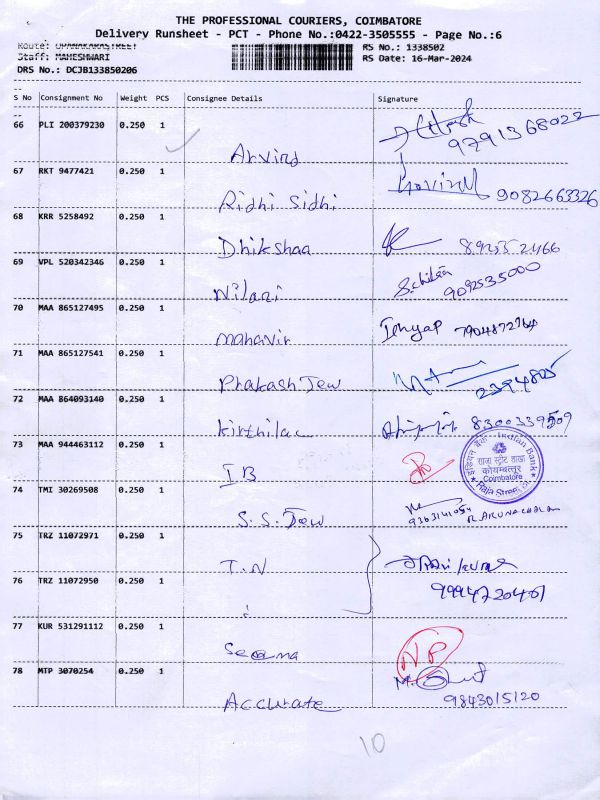 THE PROFESSIONAL COURIERS, COIMBATORE
Delivery Runsheet - PCT - Phone No.:0422-3505555 - Page No.:6
Route: OPANAKARASTREET
RS No.: 1338502
Staff: MAHESHWARI
RS Date: 16-Mar-2024
DRS No.: DCJB133850206
S No Consignment No Weight PCS Consignee Details Signature
66 PLI 200379230 0.250 1
Arvind 9791368022
67 RKT 9477421 0.250 1
Ridhi Sidhi Govind 9082663326
68 KRR 5258492 0.250 1
Dhikshaa 8925552466
69 VPL 520342346 0.250 1
Nilani 9092535000
70 MAA 865127495 0.250 1
mahavir 7904872764
71 MAA 865127541 0.250 1
Phakash Jew 2394825
72 MAA 864093140 0.250 1
Kirthilac 8300339509
73 MAA 944463112 0.250 1
IB
इंडियन बैंक - Indian Bank
राजा स्ट्रीट शाखा
कोयम्बत्तूर
Coimbatore
Raja Street
74 TMI 30269508 0.250 1
S.S. Jew 9363141054 R. ARUNACHALAM
75 TRZ 11072971 0.250 1
T.N
76 TRZ 11072950 0.250 1
9994720401
77 KUR 531291112 0.250 1
Seema NP
78 MTP 3070254 0.250 1
Accurate 9843015120
10